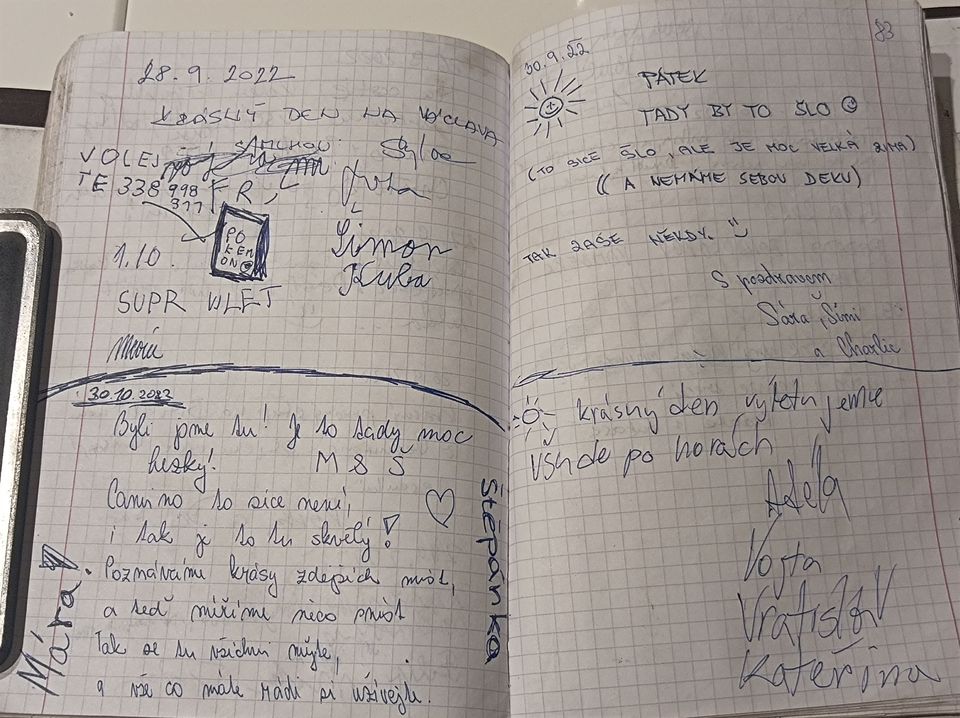 28.9.2022
KRÁSNÝ DEN NA VÁCLAVA
SAMCHOU
VOLEJ
TE 338 998
377
FR
PO
KEM
ON
Šimon
Kuba
1.10.
SUPR VLET
30.10.2022
Byli jsme tu! Je to tady moc
hezký! M & Š
Camino to sice není,
i tak je to tu skvělý!
Poznáváme krásy zdejších míst,
a teď míříme něco sníst
Tak se tu všichni mějte,
a vše co máte rádi si užívejte.
Mára
Štěpánka
83
30.9.22
PÁTEK
TADY BY TO ŠLO
(TO SICE ŠLO, ALE JE MOC VELKÁ ZIMA)
(( A NEMÁME SEBOU DEKU)
TAK ZASE NĚKDY.
S pozdravem
Sára, Šimi
a Charlie
krásný den výletujeme
všude po horách
Adéla
Vojta
Vratislav
Kateřina